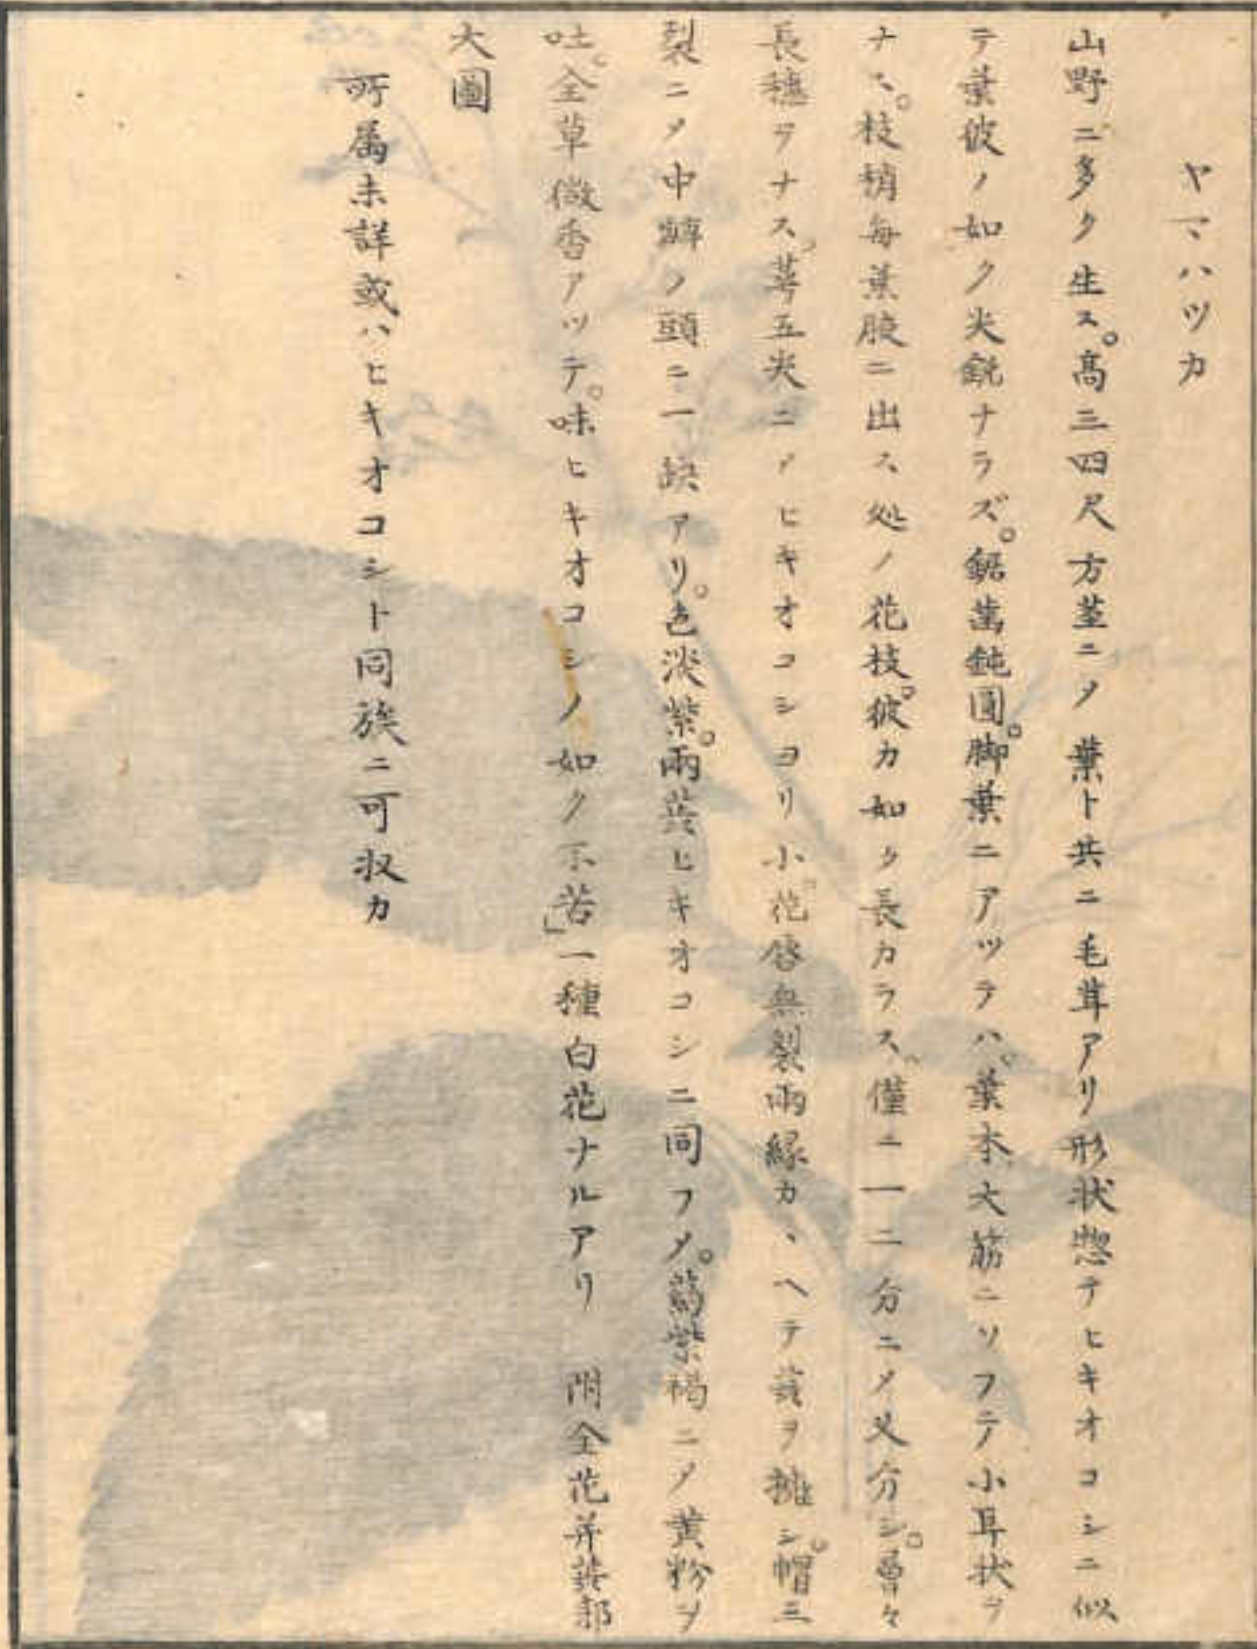 ヤマハツカ
山野ニ多ク生ス。高三四尺方莖ニメ葉ト共ニ毛茸アリ形状惣テヒキオコシニ似
テ葉彼ノ如ク尖鋭ナラズ。鋸歯鈍圓。脚葉ニアツテハ。葉本大筋ニソフテ小耳状ヲ
ナス。枝梢毎葉腋ニ出ス処ノ花枝。彼カ如ク長カラス。僅ニ一二分ニメ叉分シ。層々
長穗ヲナス。萼五尖ニメヒキオコシヨリ小。花唇無裂兩縁カヽヘテ蕋ヲ擁シ。帽三
裂ニメ中瓣ノ頭ニ一缺アリ。色淡紫。兩蕋ヒキオコシニ同フメ。葯紫褐ニメ黄粉ヲ
吐。全草微香アツテ。味ヒキオコシノ如ク不苦」一種白花ナルアリ 附全花并蕋郭
大圖
所属未詳或ハヒキオコシト同族ニ可収カ